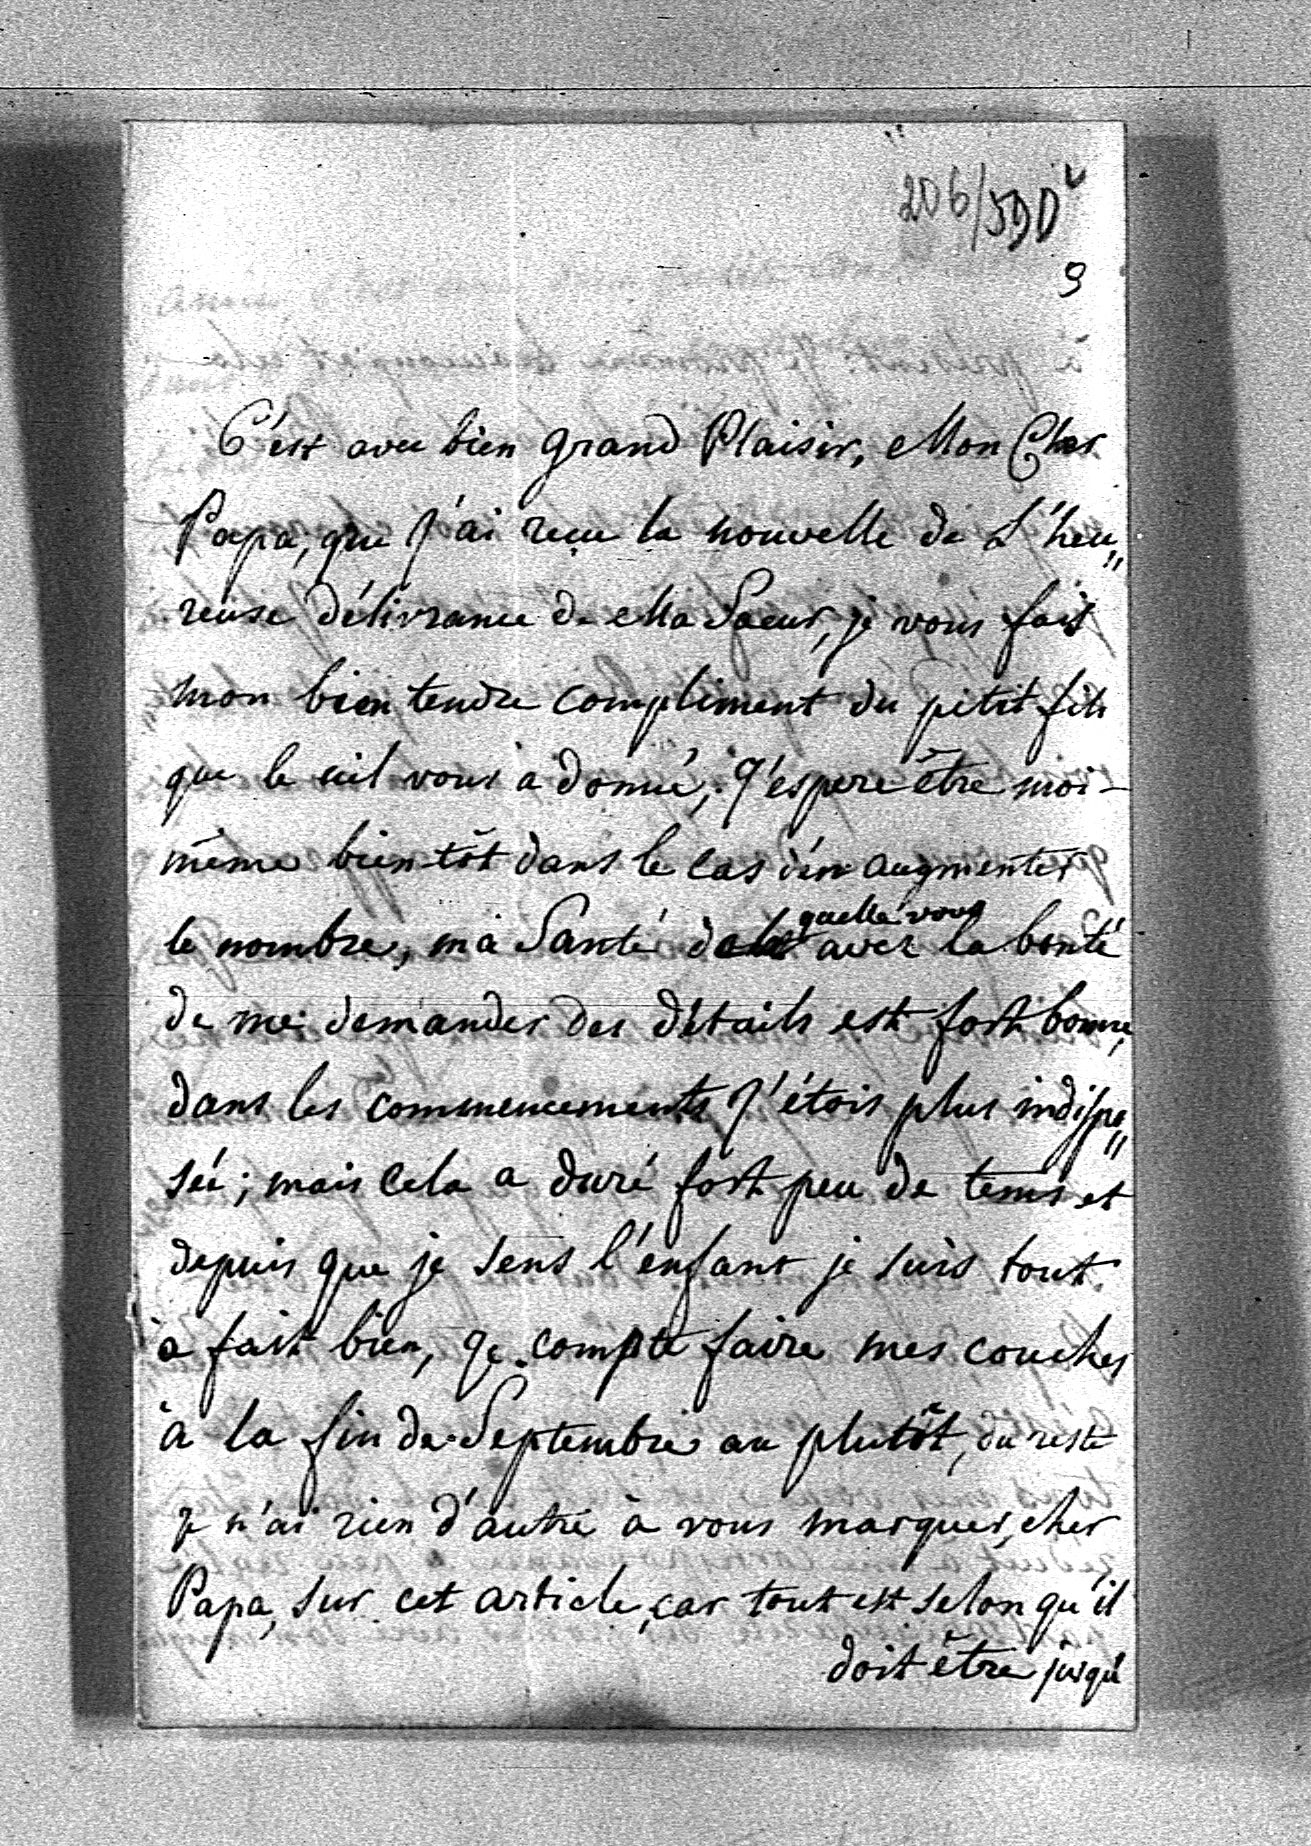 206/590
9
C'est avec bien grand Plaisir, Mon Cher
Papa, que J'ai reçu la nouvelle de L'heu„
reuse délivrance de Ma Soeur, je vous fais
mon bien tendre compliment du petit fils
que le ciel vous a donné, J'espere être moi-
même bien-tôt dans le cas d'en augmenter
le nombre, ma Santé de la quelle vous avez la bonté
de me demander des détails est fort bonne,
dans les commencements J'étois plus indispo„
sée; mais cela a duré fort peu de tems et
depuis que je sens l'enfant je suis tout
à fait bien, Je compte faire mes couches
à la fin de Septembre au plutôt, du reste
je n'ai rien d'autre à vous marquer, cher
Papa, sur cet article, car tout est selon qu'il
doit être jusqu'